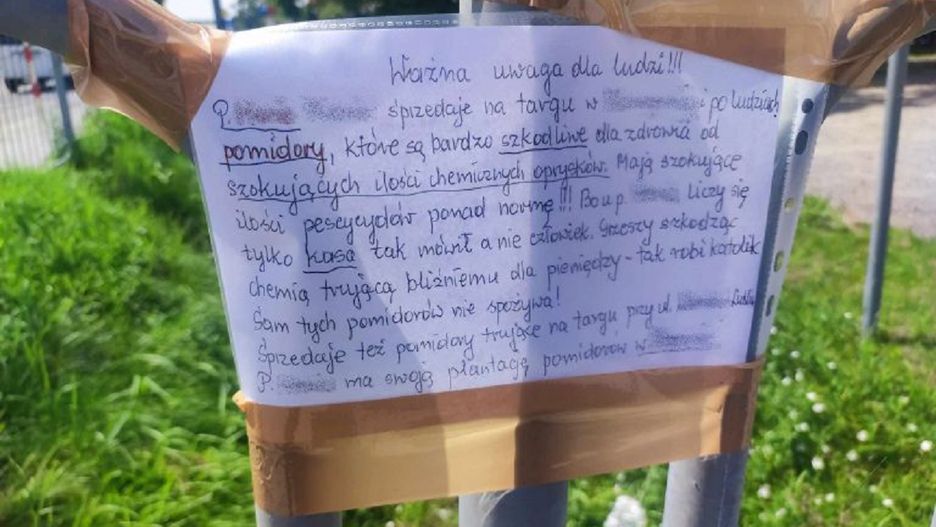 Ważna uwaga dla ludzi!!!
P. sprzedaje na targu w i po ludziach
pomidory, które są bardzo szkodliwe dla zdrowia od
szokujących ilości chemicznych oprysków. Mają szokujące
ilości pescycydów ponad normę!!! Bo u p. liczy się
tylko kasa tak mówił a nie człowiek. Grzeszy szkodząc
chemią trującą bliźniemu dla pieniędzy - tak robi katolik
Sam tych pomidorów nie spożywa!
Sprzedaje też pomidory trujące na targu przy ul.
P. ma swoją plantagę pomidorów w